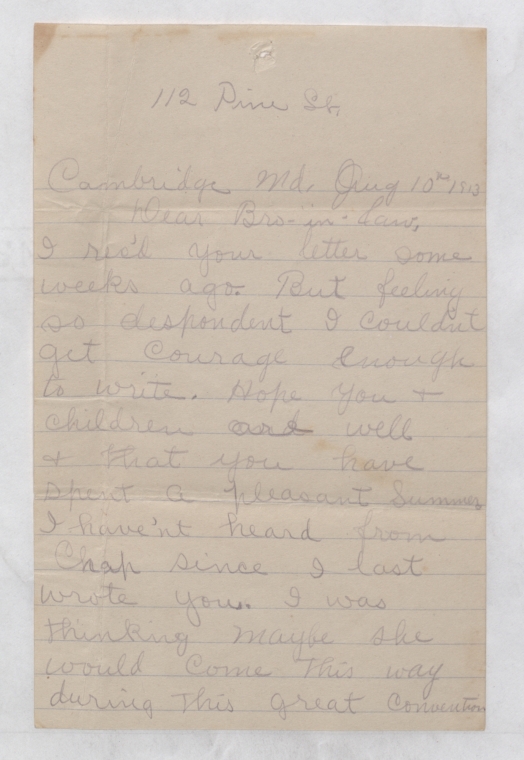 112 Pine St,
Cambridge Md, Aug 10th 1913
Dear Bro-in-Law,
I rec'd your letter some
weeks ago. But feeling
so despondent I couldn't
get courage enough
to write. Hope you +
children are well
+ that you have
spent a pleasant Summer
I have'nt heard from
Chap since I last
wrote you. I was
thinking maybe she
would come this way
during this great Convention